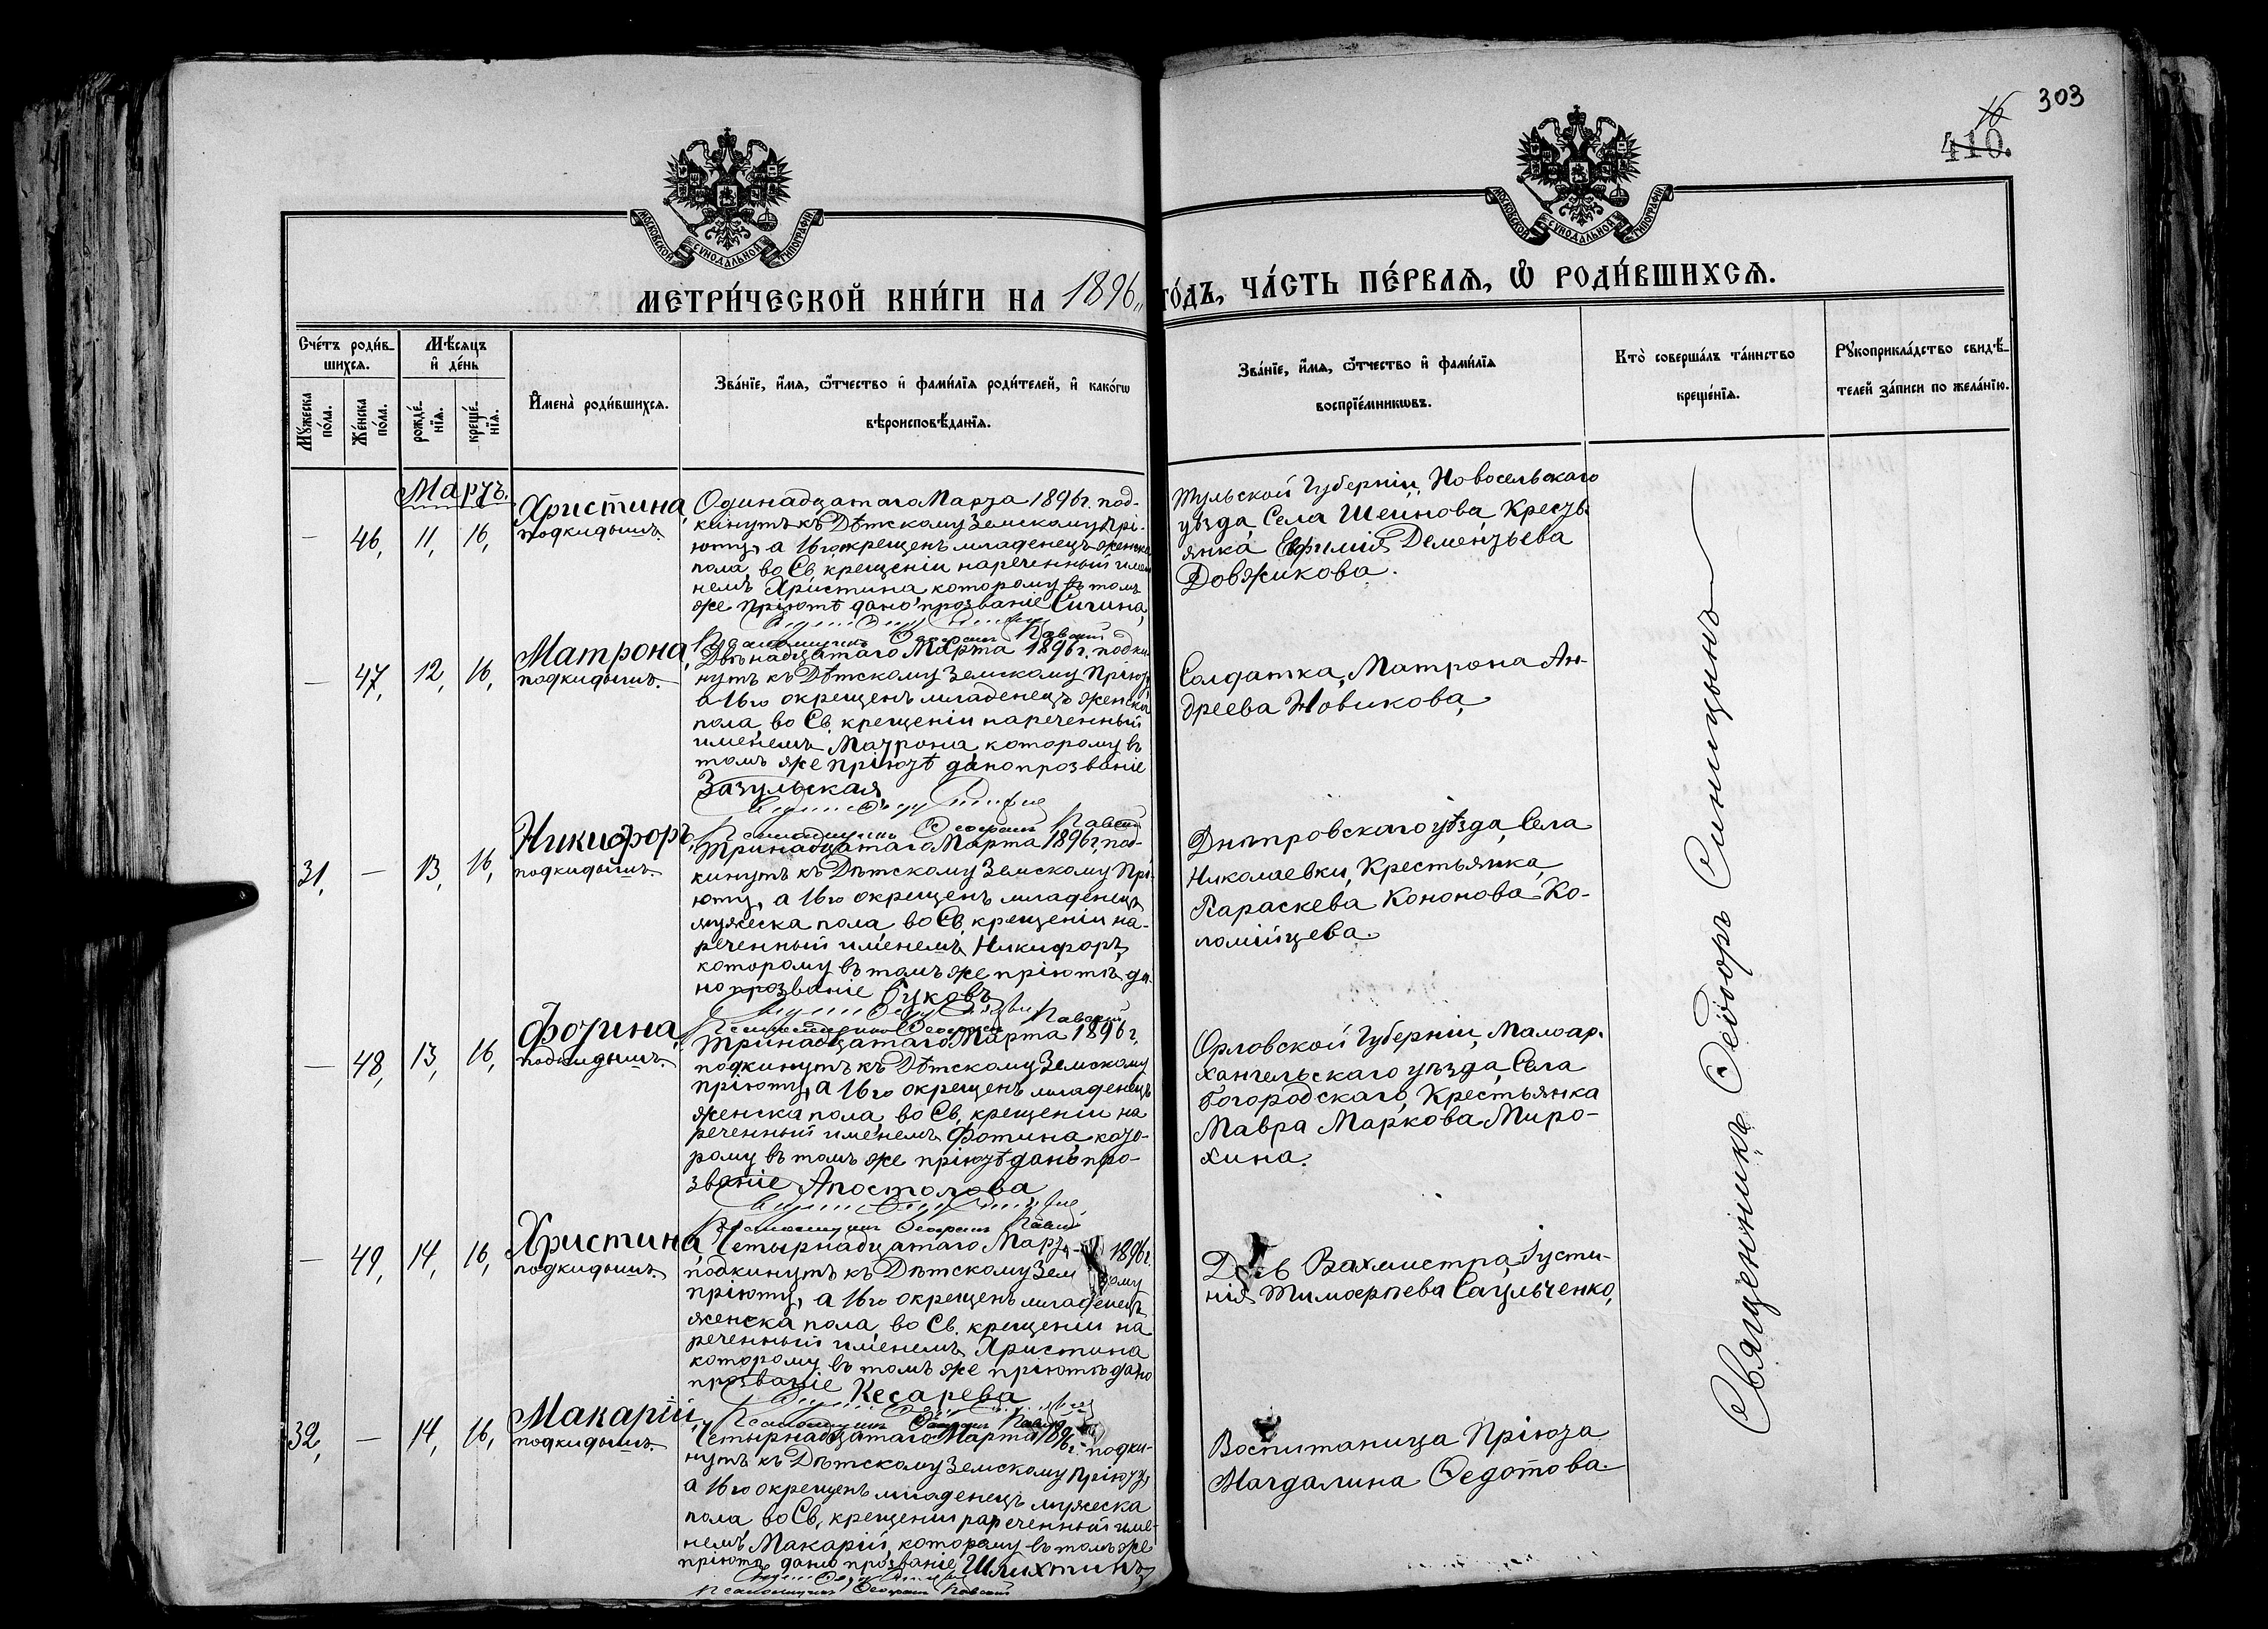 303
16
410.
МОСКОВСКОЙ СѴНОДАЛЬНОЙ ТИПОГРАФІИ
МОСКОВСКОЙ СѴНОДАЛЬНОЙ ТИПОГРАФІИ
МЕТРИ́ЧЕСКОЙ КНИ́ГИ НА 1896
ГО́ДЪ, ЧА́СТЬ ПЕ́РВАѦ, Ѡ҆ РОДИ́ВШИХСѦ.
Сче́тъ роди́в-
шихсѧ.
Мꙋ́жеска по́ла.
Же́нска по́ла.
Мѣ́сѧцъ
и҆ де́нь
рожде́-
нїѧ.
креще́-
нїѧ.
И҆мена̀ роди́вшихсѧ.
Зва́нїе, и҆́мѧ, ѻ҆́тчество и҆ фами́лїѧ роди́телей, и҆ како́гѡ
вѣроисповѣ́данїѧ.
Зва́нїе, и҆́мѧ, ѻ҆́тчество и҆ фами́лїѧ
воспрїе́мникѡвъ.
Кто̀ соверша́лъ та́инство
креще́нїѧ.
Рꙋкоприкла́дство свидѣ́-
телей за́писи по жела́нїю.
Мартъ.
— 46, 11, 16,
Христина,
подкидышъ.
Одинадцатаго Марта 1896 г. под-
кинутъ къ Дѣтскому Земскому Прі-
юту, а 16го окрещенъ младенецъ женска
пола, во Св. крещеніи нареченный име-
немъ Христина, которому въ томъ
же пріютѣ дано прозваніе Сигина,
Псаломщикъ Павскій
Тульской Губерніи, Новосельскаго
уѣзда, Села Шеинова, Кресть-
янка Евфимія Дементьева
Довжикова.
— 47, 12, 16,
Матрона,
подкидышъ.
Двѣнадцатаго Марта 1896 г. подки-
нутъ къ Дѣтскому Земскому Пріюту
а 16го окрещенъ младенецъ женска
пола, во Св. крещеніи нареченный
именемъ Матрона, которому въ
томъ же пріютѣ дано прозваніе
Зазульская,
Псаломщикъ Павскій
Солдатка, Матрона Ан-
дреева Новикова,
31, — 13, 16,
Никифоръ,
подкидышъ.
Тринадцатаго Марта 1896 г. под-
кинутъ къ Дѣтскому Земскому Прі-
юту, а 16го окрещенъ младенецъ
мужеска пола, во Св. крещеніи на-
реченный именемъ Никифоръ,
которому въ томъ же пріютѣ да-
но прозваніе Гуковъ,
Псаломщикъ Павскій
Днѣпровскаго уѣзда, Села
Николаевки, Крестьянка,
Параскева Кононова Ко-
ломійцева.
— 48, 13, 16,
Фотина,
подкидышъ.
Тринадцатаго Марта 1896 г.
подкинутъ къ Дѣтскому Земскому
пріюту, а 16го окрещенъ младенецъ
женска пола, во Св. крещеніи на
реченный именемъ Фотина, кото-
рому въ томъ же пріютѣ дано про-
званіе Апостолова
Псаломщикъ Павскій
Орловской Губерніи, Малоар-
хангельскаго уѣзда, Села
Богородскаго, Крестьянка
Мавра Маркова Миро-
хина.
— 49, 14, 16,
Христина,
подкидышъ.
Четырнадцатаго Март 1896 г.
подкинутъ къ Дѣтскому Зем кому
пріюту, а 16го окрещенъ младенецъ
женска пола, во Св. крещеніи на
реченный именемъ Христина
которому въ томъ же пріютѣ дано
прозваніе Кесарева
Псаломщикъ Павскій
Вахмистра, Іусти-
нія Тимофеева Сагульченко,
32, — 14, 16,
Макарій,
подкидышъ.
Четырнадцатаго Марта 1896 г. подки-
нутъ къ Дѣтскому Земскому Пріюту,
а 16го окрещенъ младенецъ мужеска
пола, во Св. крещеніи нареченный име-
немъ Макарій, которому въ томъ же
пріютѣ дано прозваніе Шлихтинъ,
Псаломщикъ Павскій
Воспитаница Пріюта
Магдалина Ѳедотова.
Священникъ Ѳеодоръ Синицынъ